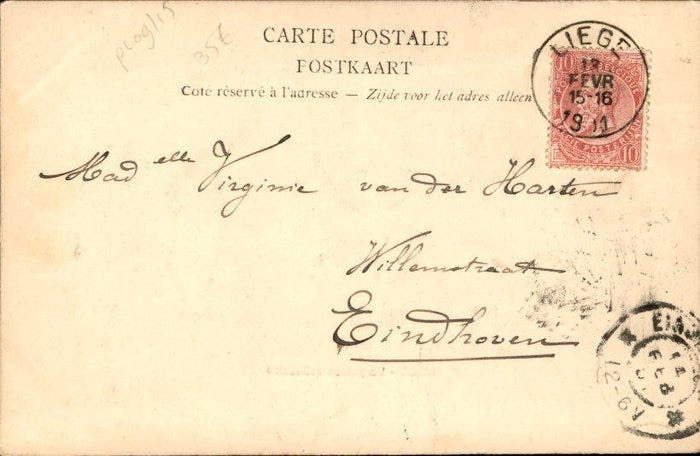 plog/15
35€
CARTE POSTALE
POSTKAART
Côté réservé à l'adresse — Zijde voor het adres alleen
LIEGE
13
FEVR
15-16
1901
10
10
Mad elle Virginie van der Harten
Willemstraat
Eindhoven
14
FEB